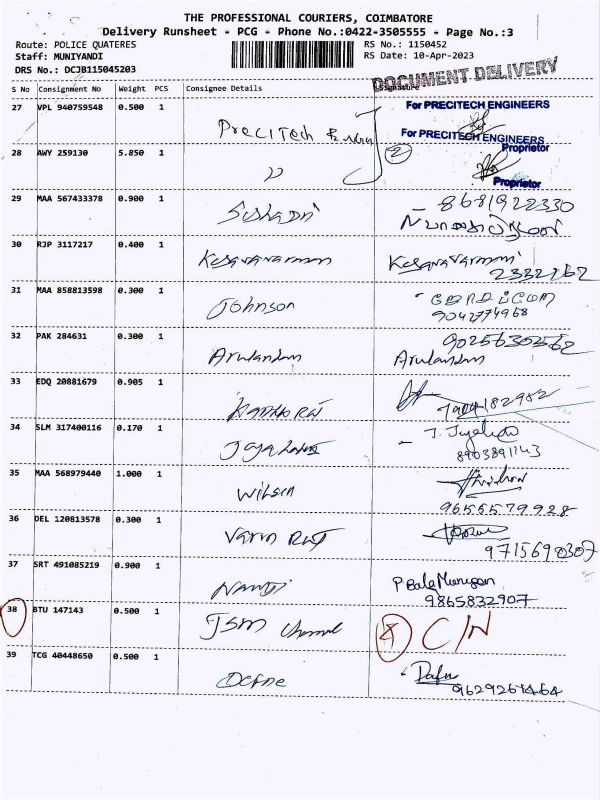 THE PROFESSIONAL COURIERS, COIMBATORE
Delivery Runsheet - PCG - Phone No.:0422-3505555 - Page No.:3
Route: POLICE QUATERES
RS No.: 1150452
Staff: MUNIYANDI
RS Date: 10-Apr-2023
DRS No.: DCJB115045203
DOCUMENT DELIVERY
S No Consignment No Weight PCS Consignee Details Signature
27 VPL 940759548 0.500 1
For PRECITECH ENGINEERS
Precitech
For PRECITECH ENGINEERS
Proprietor
28 AWY 259130 5.850 1
2
Proprietor
29 MAA 567433378 0.900 1
8681922330
30 RJP 3117217 0.400 1
Kesavavarman
2332762
31 MAA 858813598 0.300 1
Johnson
9042774968
32 PAK 284631 0.300 1
9025630562
Arulandam Arulandam
33 EDQ 20881679 0.905 1
7904182982
34 SLM 317400116 0.170 1
8903891143
35 MAA 568979440 1.000 1
Wilson
9655579928
36 DEL 120813578 0.300 1
Varun Raj
9715690307
37 SRT 491085219 0.900 1
Nandi P Bala Murugan
9865832907
38 BTU 147143 0.500 1
JSM Channel C/N
39 TCG 40448650 0.500 1
9629267464